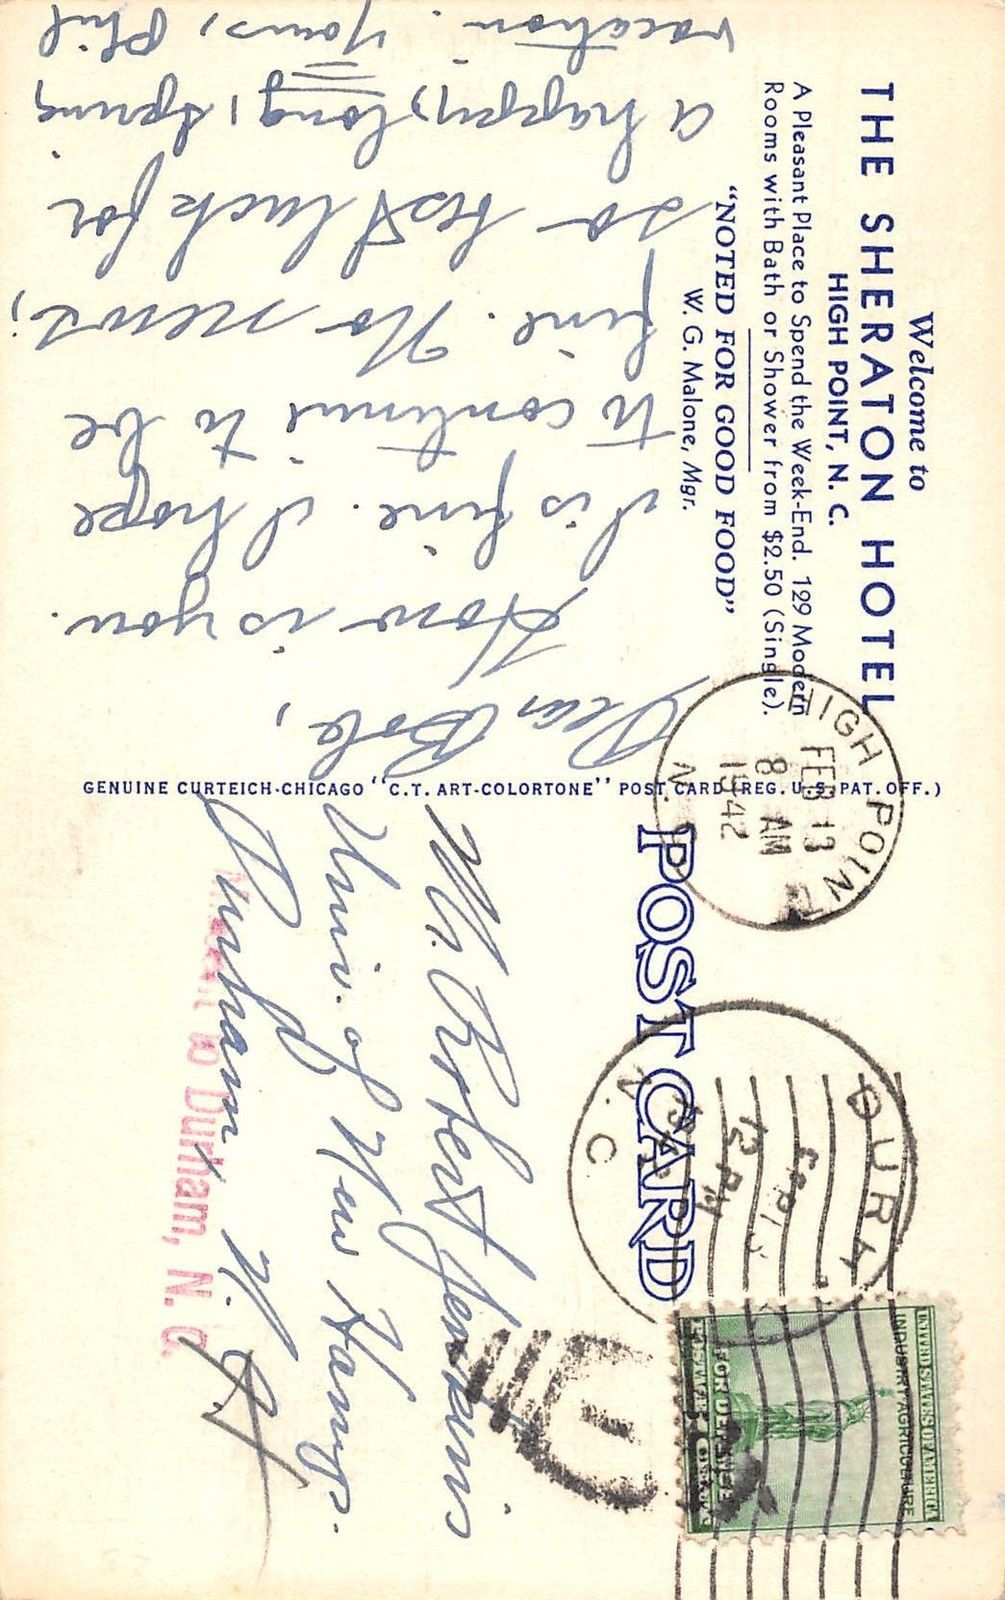 Welcome to
THE SHERATON HOTEL
HIGH POINT, N. C.
A Pleasant Place to Spend the Week-End. 129 Modern
Rooms with Bath or Shower from $2.50 (Single).
"NOTED FOR GOOD FOOD"
W. G. Malone, Mgr.
Dear Bob,
How is you.
I is fine. I hope
to continue to be
fine. No news;
so best luck for
a happy, long, spring
vacation. Yours, Phil
GENUINE CURTEICH-CHICAGO "C.T. ART-COLORTONE" POST CARD (REG. U.S. PAT. OFF.)
POST CARD
HIGH POINT
N.
FEB 13
8 AM
1942
DURH
N. C
12 PM
UNITED STATES OF AMERICA
INDUSTRY AGRICULTURE
FOR DEFENSE
Mr. Robert Jenkins
Univ. of New Hamp.
Durham N. H
to Durham, N. C.